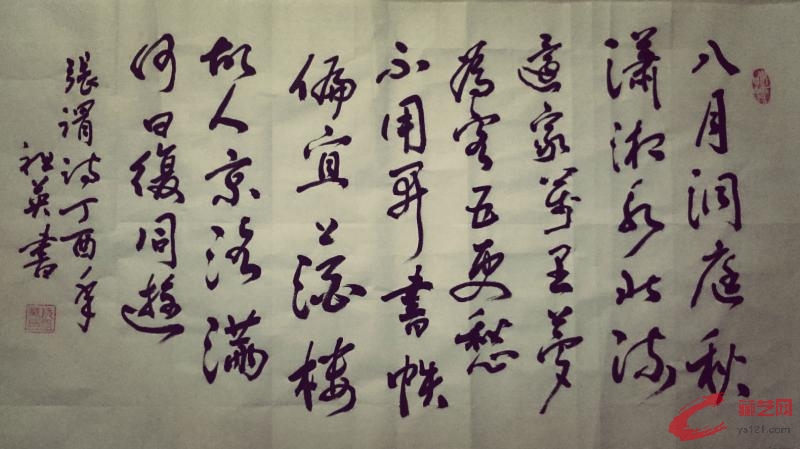 八月洞庭秋
瀟湘水北流
還家萬里夢
為客五更愁
不用開書帙
偏宜上酒樓
故人京洛滿
何日復同遊
張謂詩丁酉年
祖英書
ys121.com